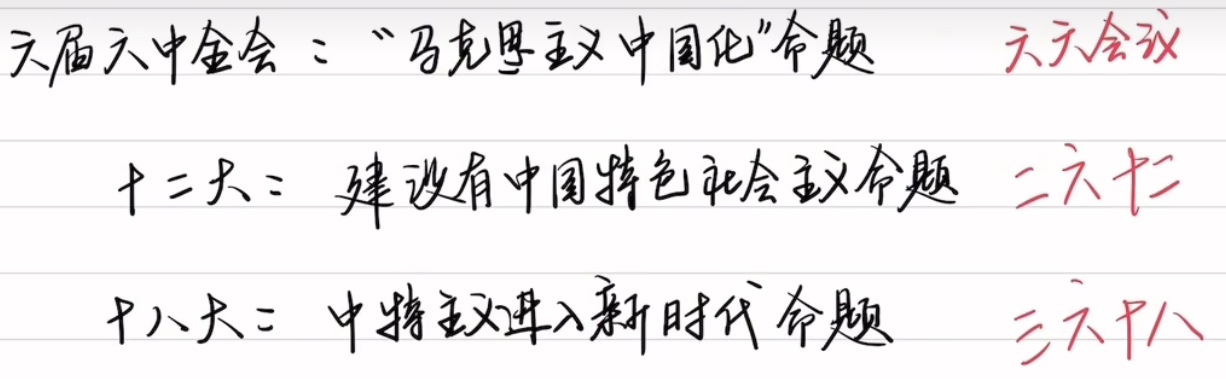 六届六中全会：“马克思主义中国化”命题 六六会议
十二大：建设有中国特色社会主义命题 二六十二
十八大：中特主义进入新时代命题 三六十八